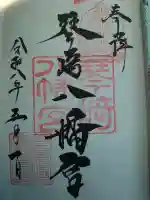 奉拝
琴崎八幡宮
令和八年五月一日